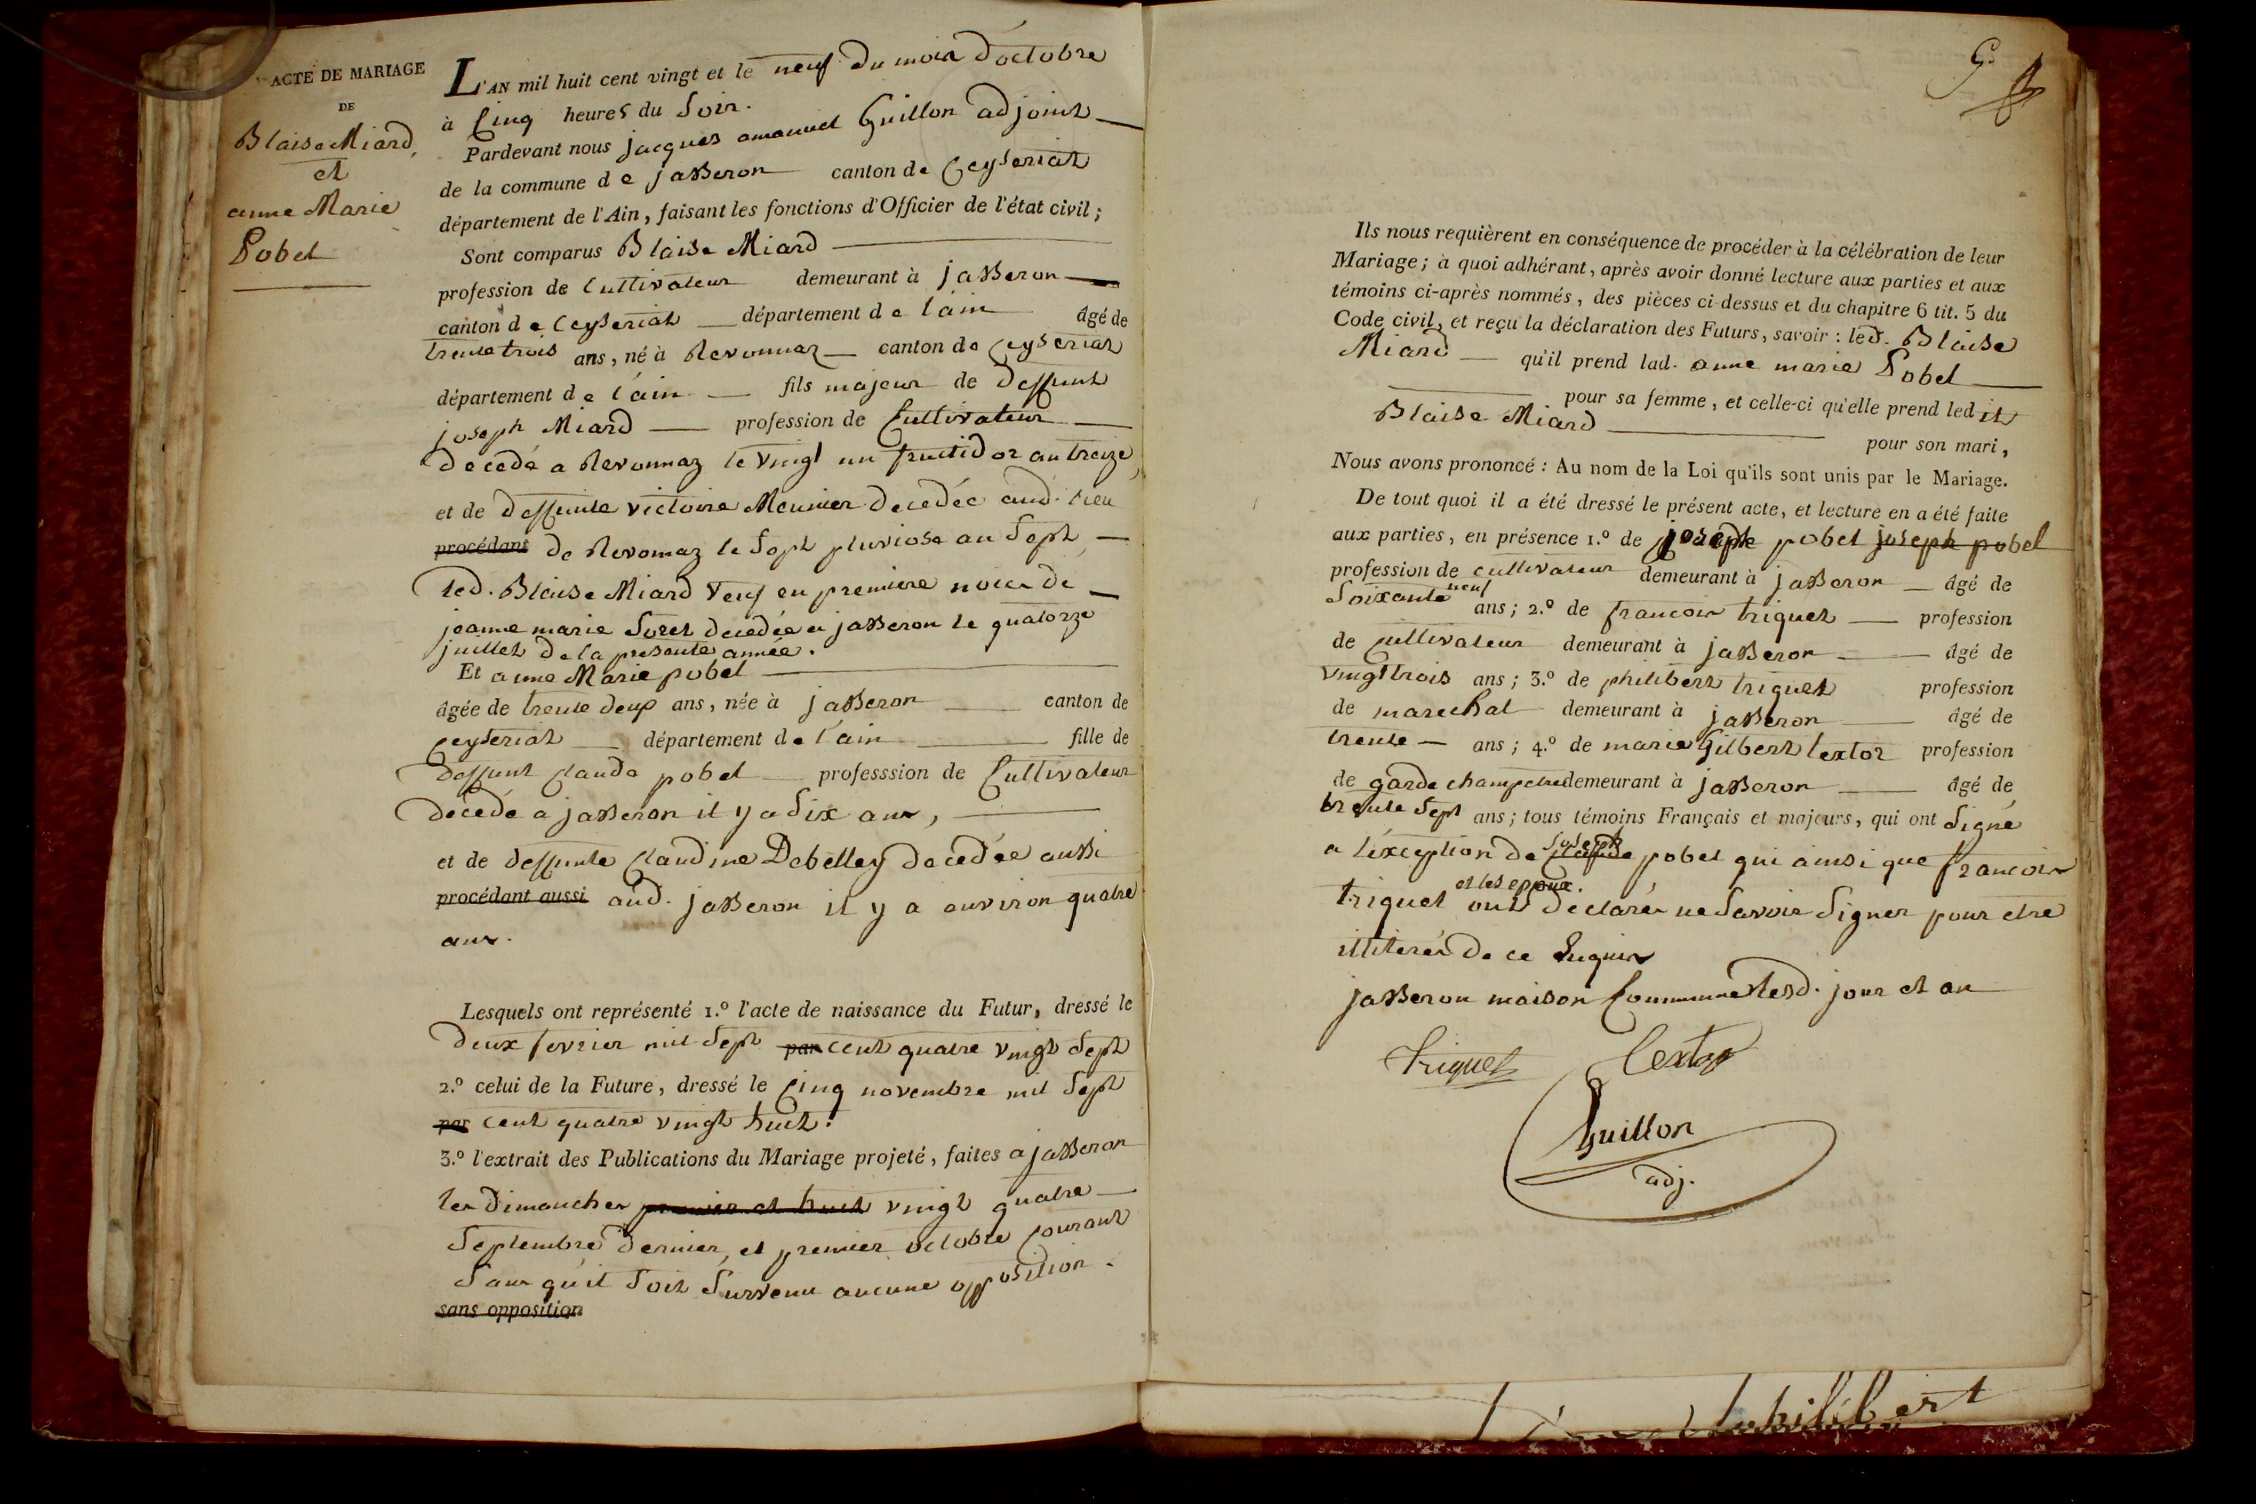 ACTE DE MARIAGE
DE
Blaise Miard,
et
anne Marie
Pobel
L'AN mil huit cent vingt et le neuf du mois d'octobre
à Cinq heures du Soir.
Pardevant nous jacques amanuel Guillon adjoint
de la commune de jasseron canton de Ceyseriat
département de l'Ain, faisant les fonctions d'Officier de l'état civil;
Sont comparus Blaise Miard
profession de Cultivateur demeurant à jasseron
canton de Ceyseriat département de l'ain âgé de
trente trois ans, né à Revonnaz canton de Ceyseriat
département de l'ain fils majeur de deffunt
joseph Miard profession de Cultivateur
décédé a Revonnaz le vingt un fructidor an treize
et de deffunte victoire Meunier decedée aud. lieu
procédant de Revonnaz le Sept pluviose an Sept
led. Blaise Miard Veuf en premiere noces de
jeanne marie Soret decedée a jasseron le quatorze
juillet de la presente année.
Et anne Marie pobel
âgée de trente deux ans, née à jasseron canton de
Ceyseriat département de l'ain fille de
deffunt Claude pobel professsion de Cultivateur
décédé a jasseron il y a dix ans,
et de deffunte Claudine Debelley decedée aussi
procédant aussi aud. jasseron il y a environ quatre
ans.
Lesquels ont représenté 1.º l'acte de naissance du Futur, dressé le
deux fevrier mil Sept par cent quatre vingt Sept
2.º celui de la Future, dressé le Cinq novembre mil Sept
par cent quatre vingt huit.
3.º l'extrait des Publications du Mariage projeté, faites a jasseron
les dimanches premier et huit vingt quatre
Septembre dernier, et premier octobre Courant
Sans qu'il Soit Survenu aucune opposition.
sans opposition
Ils nous requièrent en conséquence de procéder à la célébration de leur
Mariage; à quoi adhérant, après avoir donné lecture aux parties et aux
témoins ci-après nommés, des pièces ci-dessus et du chapitre 6 tit. 5 du
Code civil, et reçu la déclaration des Futurs, savoir: led. Blaise
Miard qu'il prend lad. anne marie Pobel
pour sa femme, et celle-ci qu'elle prend led it
Blaise Miard pour son mari,
Nous avons prononcé: Au nom de la Loi qu'ils sont unis par le Mariage.
De tout quoi il a été dressé le présent acte, et lecture en a été faite
aux parties, en présence 1.º de joseph pobel joseph pobel
profession de cultivateur demeurant à jasseron âgé de
Soixante neuf ans; 2.º de francois triquet profession
de Cultivateur demeurant à jasseron âgé de
vingt trois ans; 3.º de philibert triquet profession
de marechal demeurant à jasseron âgé de
trente ans; 4.º de marie Gilbert textor profession
de garde champetre demeurant à jasseron âgé de
trente Sept ans; tous témoins Français et majeurs, qui ont Signé
a l'exception de joseph pobel qui ainsi que francois
triquet et les epoux. ont déclarés ne Savoir Signer pour etre
illiterés de ce Requis
jasseron maison Commune lesd. jour et an
triquet textor
Guillon
adj.